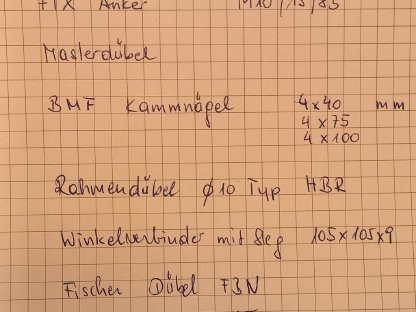 FIX Anker M10/15/85
Maslerdübel
BMF Kammnägel 4x40 mm
4x75
4x100
Rahmendübel ø10 Typ HBR
Winkelverbinder mit Steg 105x105x9
Fischer Dübel FBN